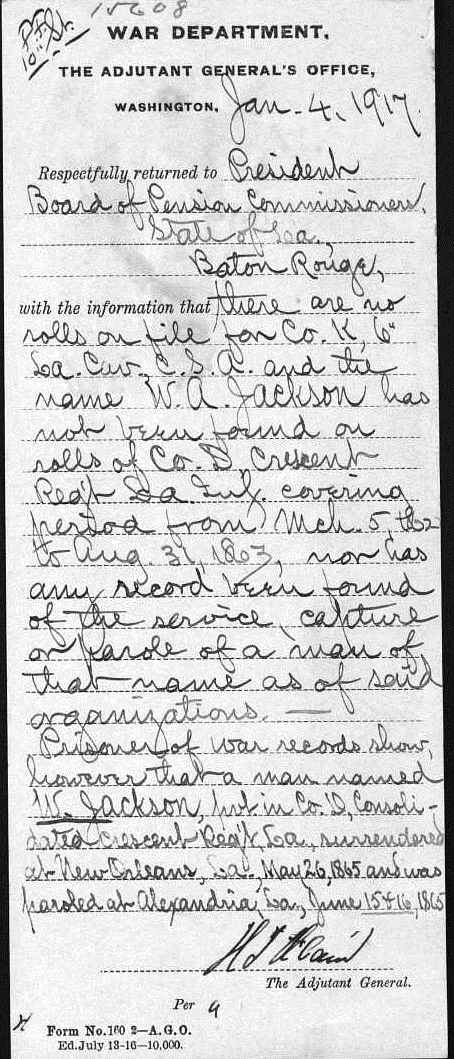 15608
WAR DEPARTMENT,
THE ADJUTANT GENERAL'S OFFICE,
WASHINGTON, Jan. 4, 1917.
Respectfully returned to President
Board of Pension Commissioners,
State of La.,
Baton Rouge,
with the information that there are no
rolls on file for Co. K, 6"
La. Cav., C.S.A. and the
name W. A. Jackson has
not been found on
rolls of Co. D, Crescent
Reg't La. Inf. covering
period from Mch. 5, 1862
to Aug. 31, 1863, nor has
any record been found
of the service, capture
or parole of a man of
that name as of said
organizations. —
Prisoner of war records show,
however that a man named
W. Jackson, pvt in Co. D, Consoli-
dated Crescent Reg't, La., surrendered
at New Orleans, La., May 26, 1865 and was
paroled at Alexandria, La., June 15 & 16, 1865
The Adjutant General.
Per
Form No. 160 2—A.G.O.
Ed. July 13-16—10,000.